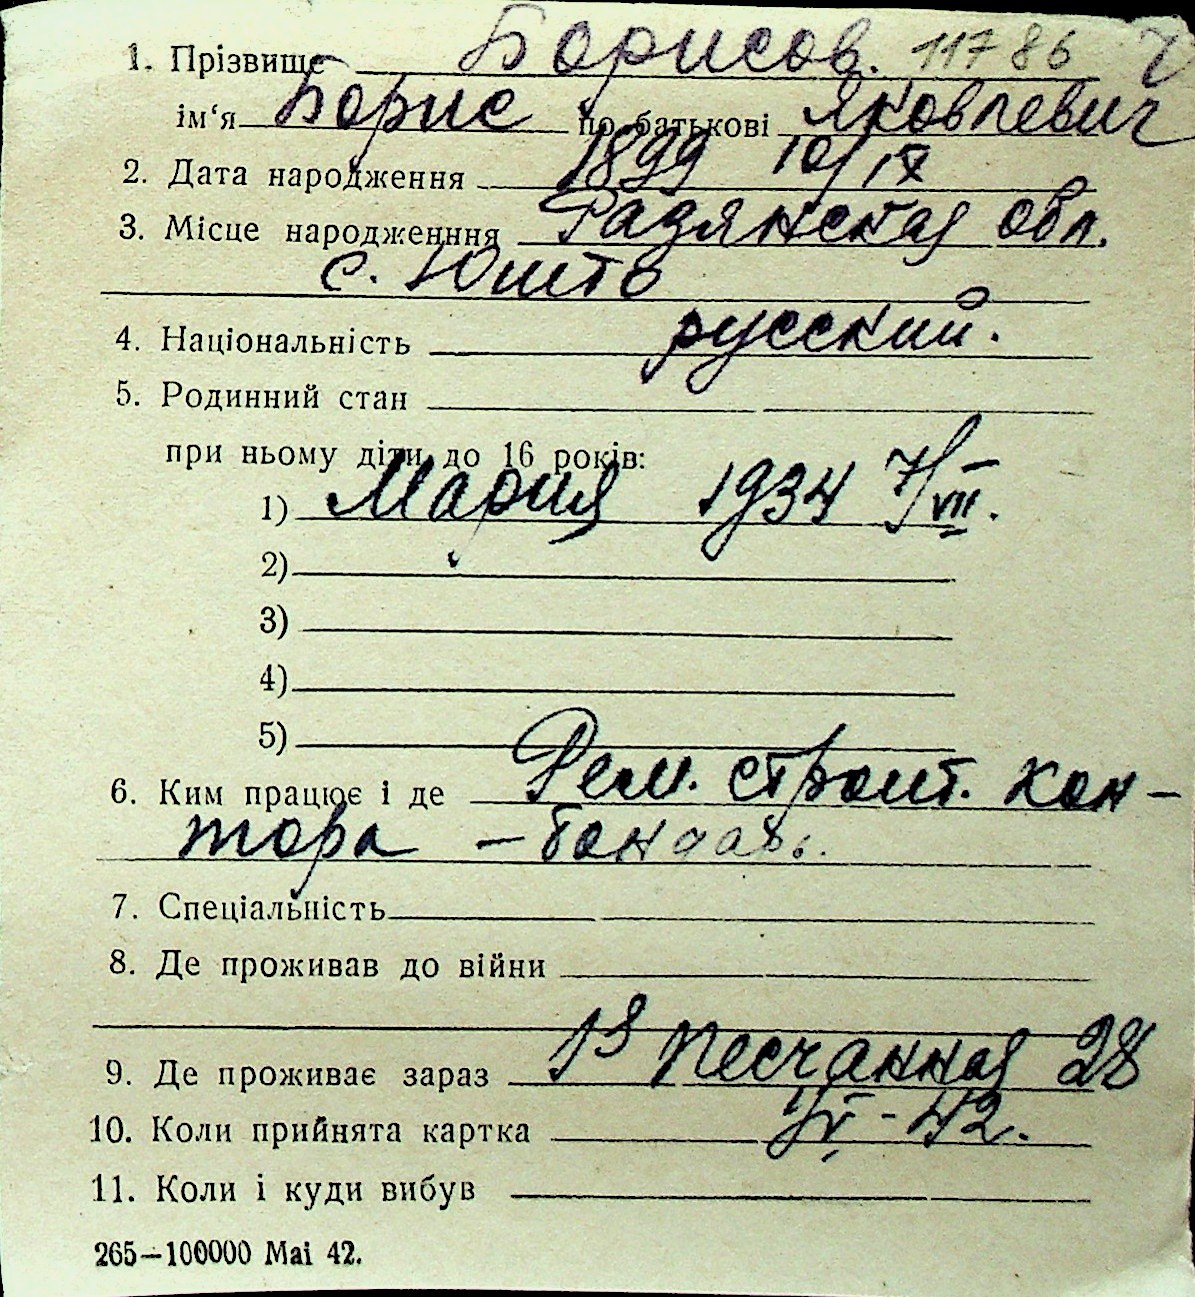 1. Прізвище Борисов. 11786
ім‘я Борис по батькові Яковлевич
2. Дата народження 1899 10/IX
3. Місце народженння Рязянская обл.
с. Юшто
4. Національність русский.
5. Родинний стан
при ньому діти до 16 років:
1) Мария 1934 7/VII.
2)
3)
4)
5)
6. Ким працює і де Рем. строит. кон-
тора – бондарь.
7. Спеціальність
8. Де проживав до війни
9. Де проживає зараз 13 Песчанная 28
10. Коли прийнята картка 1/VI - 42.
11. Коли і куди вибув
265—100000 Mai 42.